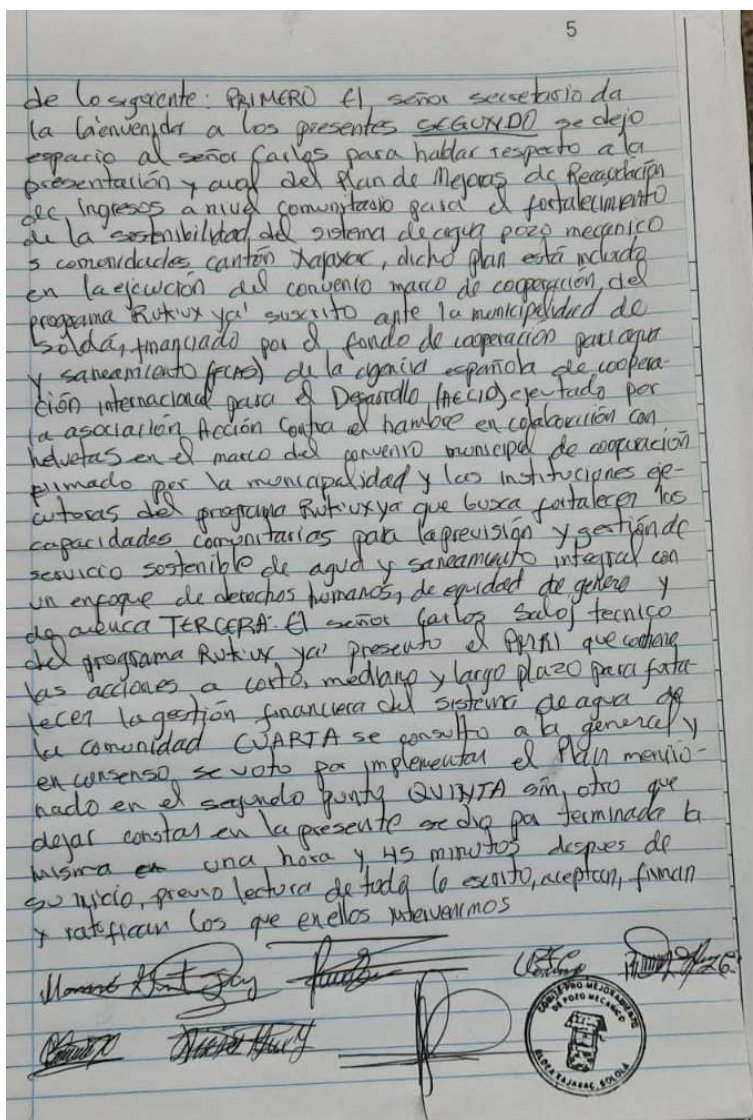 5
de lo siguiente: PRIMERO El señor secretario da
la bienvenida a los presentes SEGUNDO se dejo
espacio al señor Carlos para hablar respecto a la
presentación y aval del Plan de Mejoras de Recaudación
de ingresos a nivel comunitario para el fortalecimiento
de la sostenibilidad del sistema de agua pozo mecánico
5 comunidades, cantón Xajaxac, dicho plan está incluido
en la ejecución del convenio marco de cooperación, del
programa Rukux ya' suscrito ante la municipalidad de
Sololá, financiado por el fondo de cooperación para agua
y saneamiento (FCAS) de la agencia española de coopera-
ción internacional para el Desarrollo (AECID) ejecutado por
la asociación Acción Contra el hambre en colaboración con
helvetas en el marco del convenio municipal de cooperación
firmado por la municipalidad y las instituciones eje-
cutoras del programa Rukux ya que busca fortalecer las
capacidades comunitarias para la previsión y gestión de
servicio sostenible de agua y saneamiento integral con
un enfoque de derechos humanos, de equidad de genero y
de cuenca TERCERA: El señor Carlos Saloj tecnico
del programa Rukux ya' presento el PMRI que contiene
las acciones a corto, mediano y largo plazo para forta-
lecer la gestión financiera del sistema de agua de
la comunidad CUARTA se consulto a la general y
en consenso se voto por implementar el Plan mencio-
nado en el segundo punto QUINTA sin otro que
dejar constar en la presente se dio por terminada la
misma en una hora y 45 minutos despues de
su inicio, previo lectura de todo lo escrito, aceptan, firman
y ratifican los que en ellos intervenimos
COMITÉ PRO MEJORAMIENTO
DE POZO MECANICO
ALDEA XAJAXAC, SOLOLÁ